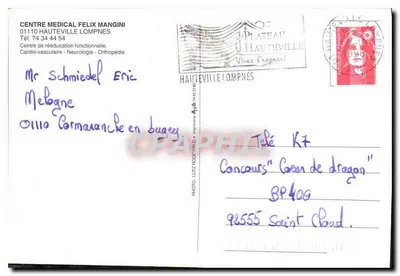 CENTRE MEDICAL FELIX MANGINI
01110 HAUTEVILLE LOMPNES
Tél. 74 34 44 54
Centre de rééducation fonctionnelle,
Cardio-vasculaire - Neurologie - Orthopédie
PLATEAU
HAUTEVILLE
HAUTEVILLE LOMPNES
Mr Schmiedel Eric
Melogne
01110 Cormaranche en bugey
Télé K7
Concours "Coeur de dragon"
BP 409
92555 Saint Cloud.